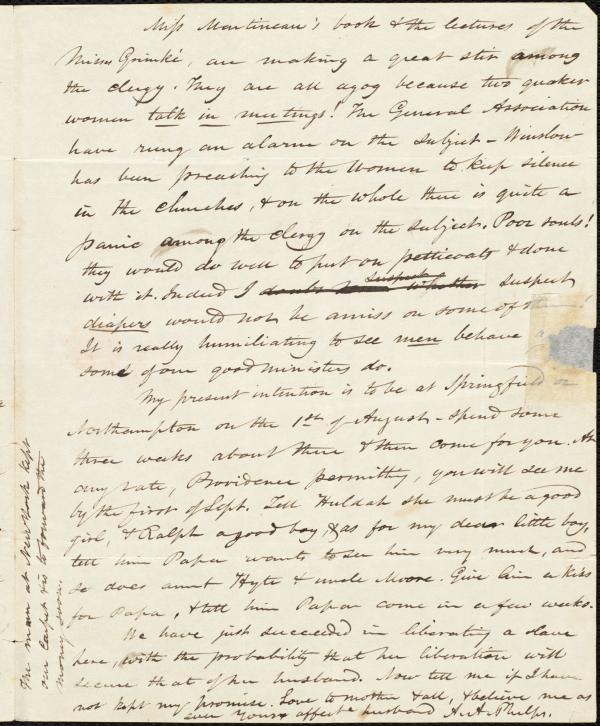 Miss Martineau's book & the lectures of the
Misses Grimké, are making a great stir among
the clergy. They are all agog because two quaker
women talk in meetings! The General Association
have rung an alarm on the subject - Winslow
has been preaching to the women to keep silence
in the churches, & on the whole there is quite a
panic among the clergy on the subject. Poor souls!
they would do well to put on petticoats & done
with it. Indeed I suspect
diapers would not be amiss on some of them!
It is really humiliating to see men behave as
some of our good ministers do.
My present intention is to be at Springfield or
Northampton on the 1st of August - spend some
three weeks about there & then come for you. At
any rate, Providence permitting, you will see me
by the first of Sept. Tell Huldah she must be a good
girl, & Ralph a good boy & as for my dear little boy,
tell him Papa wants to see him very much, and
so does aunt Hyte & uncle Moore. Give him a kiss
for Papa, & tell him Papa come in a few weeks.
We have just succeeded in liberating a slave
here, with the probability that her liberation will
secure that of her husband. Now tell me if I have
not kept my promise. Love to mother & all, & believe me as
ever yours affect. husband A. A. Phelps.
The man at New York kept
our carpet is to forward the
money soon.